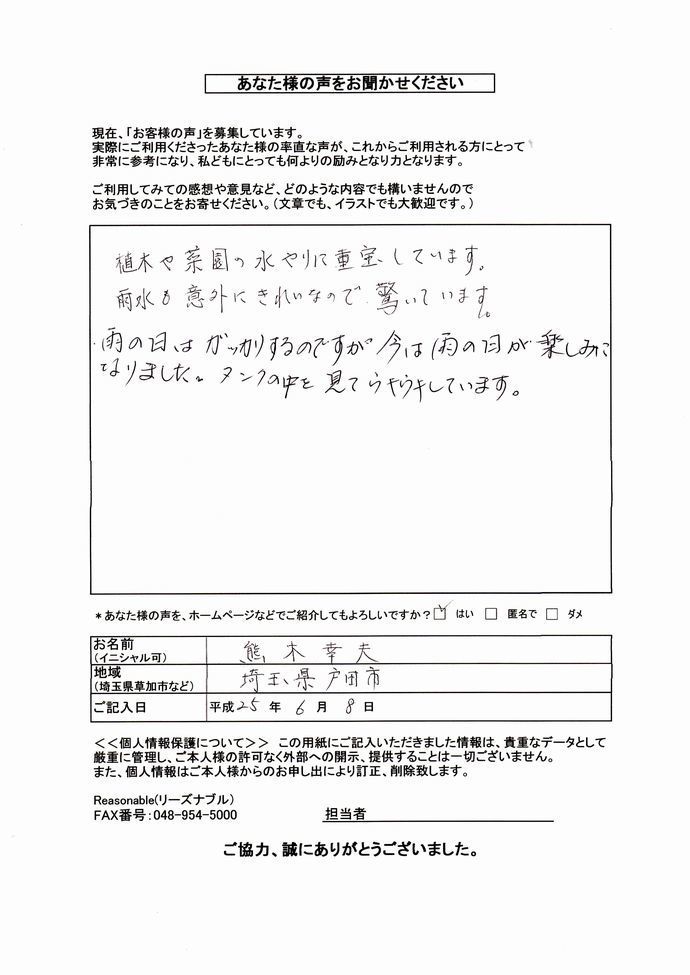 あなた様の声をお聞かせください
現在、「お客様の声」を募集しています。
実際にご利用くださったあなた様の率直な声が、これからご利用される方にとって
非常に参考になり、私どもにとっても何よりの励みとなり力となります。
ご利用してみての感想や意見など、どのような内容でも構いませんので
お気づきのことをお寄せください。（文章でも、イラストでも大歓迎です。）
植木や菜園の水やりに重宝しています。
雨水も意外にきれいなので驚いています。
雨の日はガッカリするのですが今は雨の日が楽しみに
なりました。タンクの中を見てウキウキしています。
*あなた様の声を、ホームページなどでご紹介してもよろしいですか？☑ はい □ 匿名で □ ダメ
お名前
（イニシャル可）
熊木幸夫
地域
（埼玉県草加市など）
埼玉県戸田市
ご記入日 平成25年 6月 8日
＜＜個人情報保護について＞＞ この用紙にご記入いただきました情報は、貴重なデータとして
厳重に管理し、ご本人様の許可なく外部への開示、提供することは一切ございません。
また、個人情報はご本人様からのお申し出により訂正、削除致します。
Reasonable(リーズナブル)
FAX番号：048-954-5000 担当者
ご協力、誠にありがとうございました。